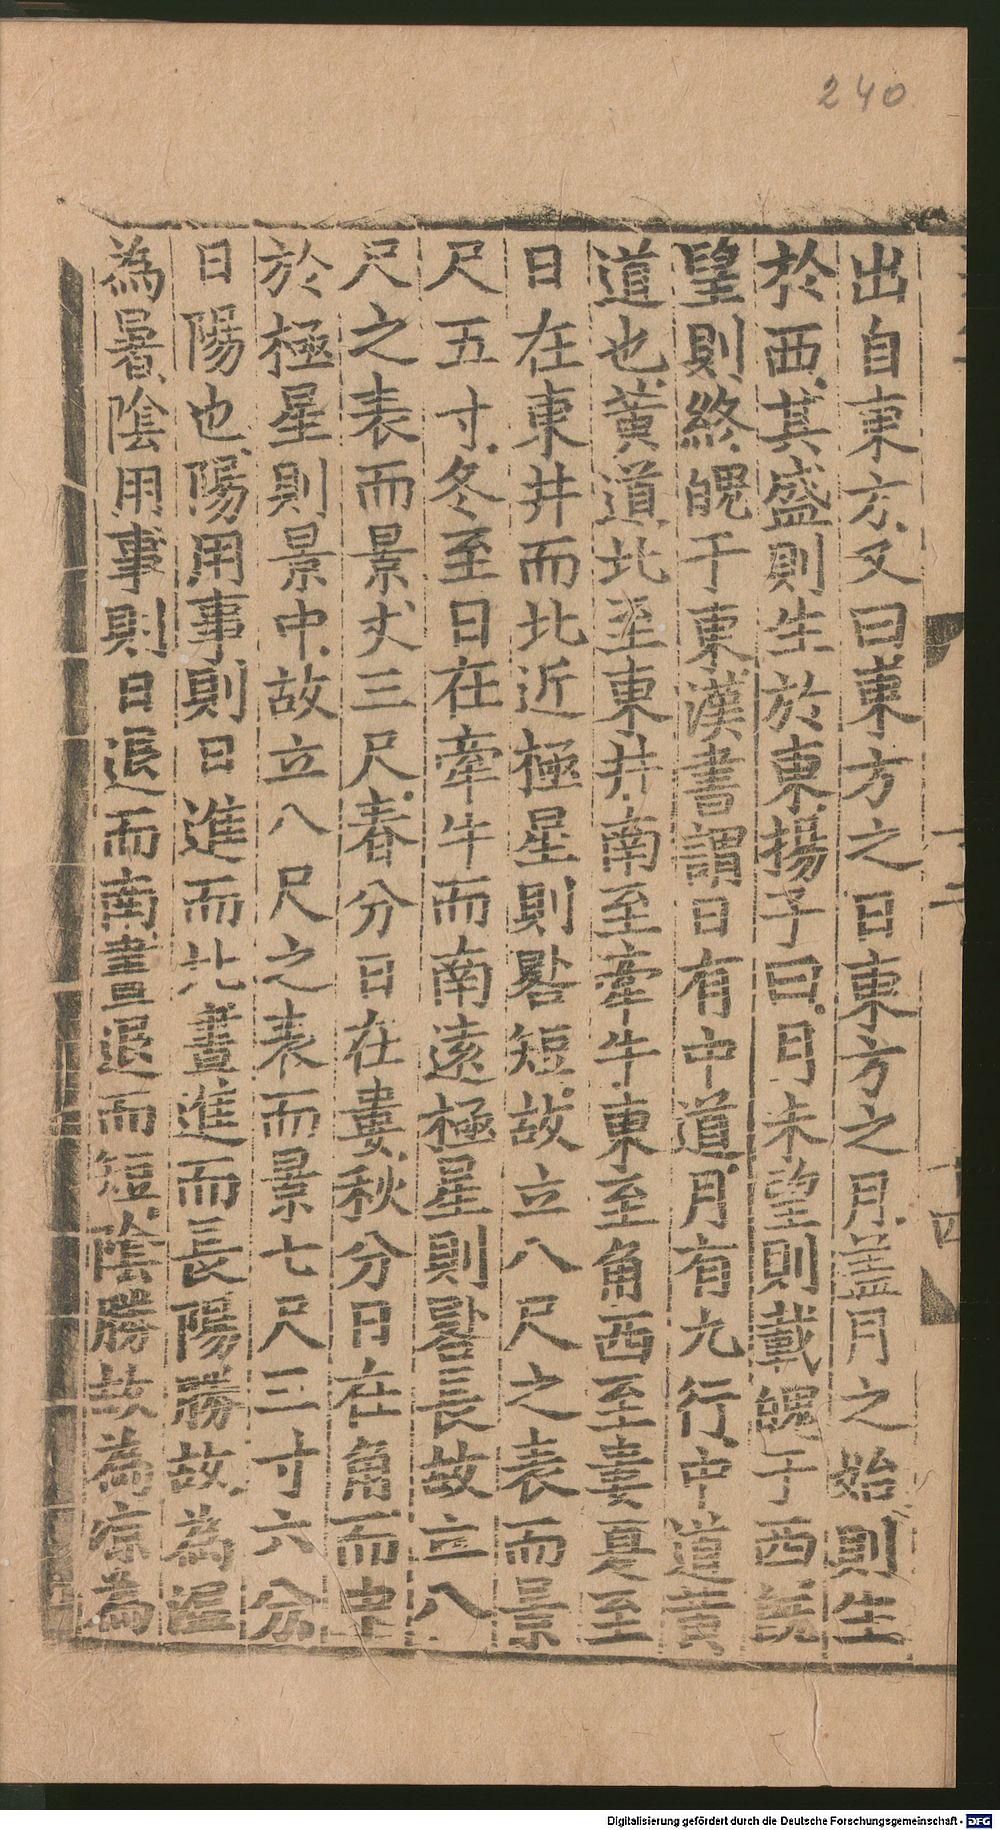 240
出自東方又曰東方之日東方之月蓋月之始則生
於西其盛則生於東揚子曰月未望則載魄于西旣
望則終魄于東漢書謂日有中道月有九行中道黃
道也黃道北至東井南至牽牛東至角西至婁夏至
日在東井而北近極星則晷短故立八尺之表而景
尺五寸冬至日在牽牛而南遠極星則晷長故立八
尺之表而景丈三尺春分日在婁秋分日在角而中
於極星則景中故立八尺之表而景七尺三寸六分
日陽也陽用事則日進而北晝進而長陽勝故為溫
為暑陰用事則日退而南晝退而短陰勝故為凉為
Digitalisierung gefördert durch die Deutsche Forschungsgemeinschaft - DFG